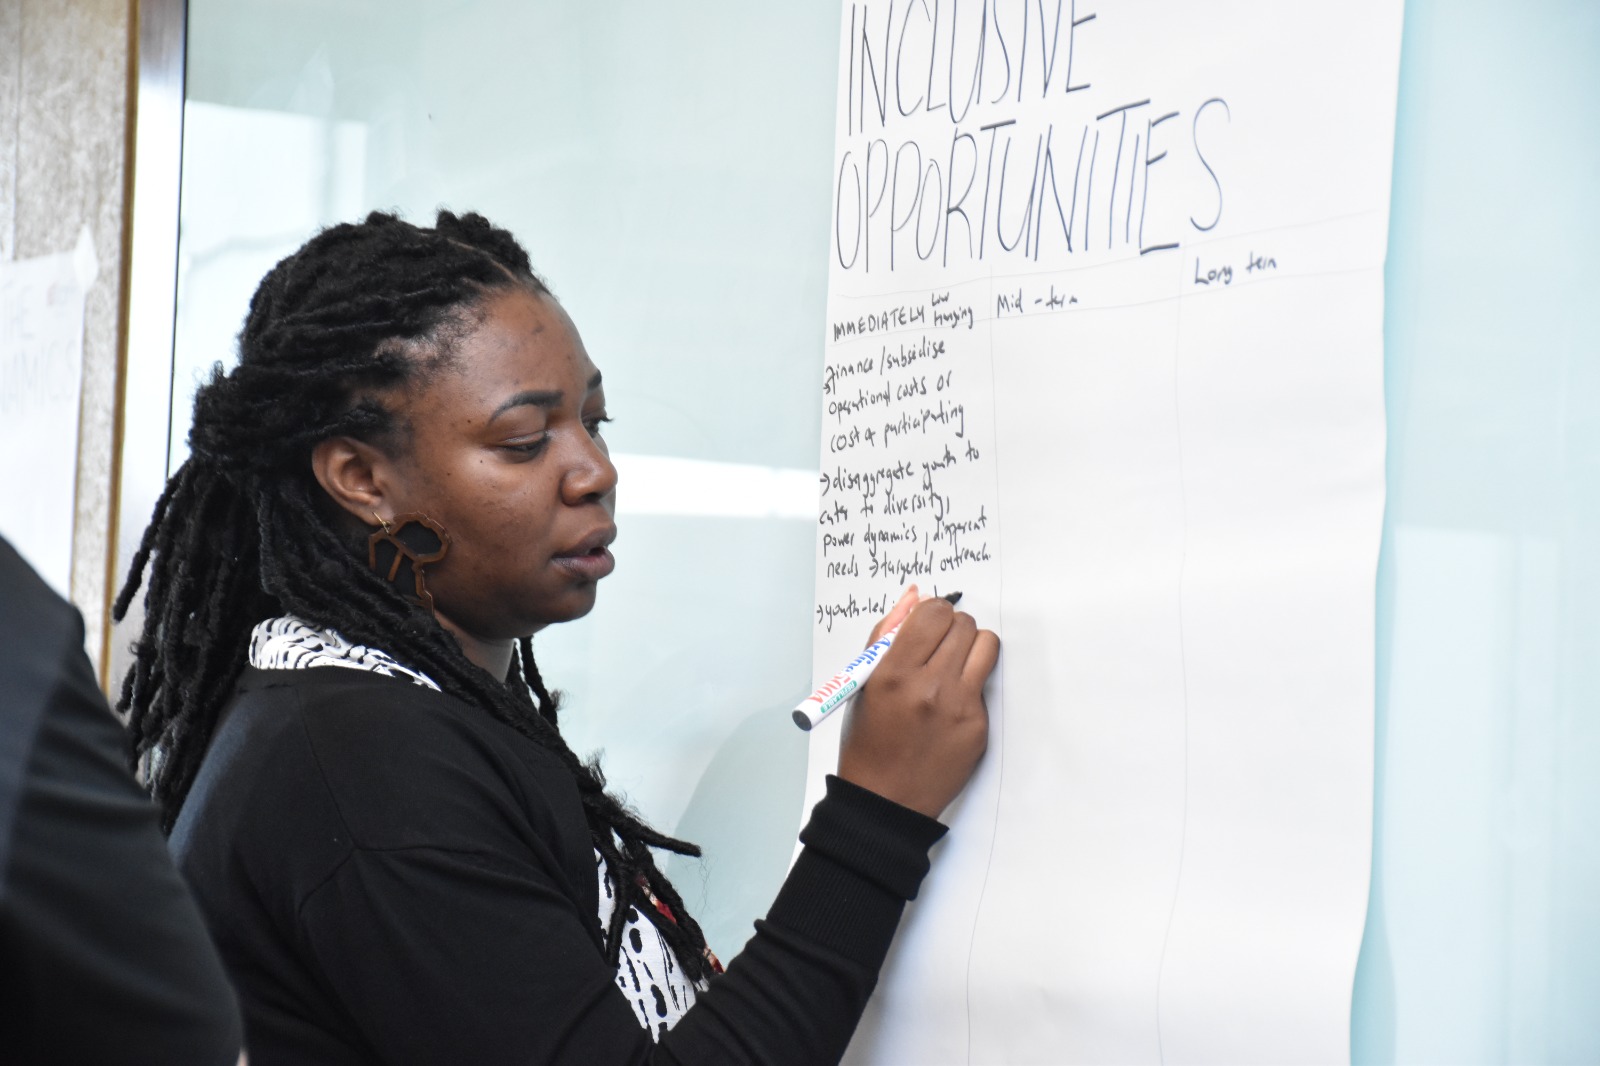 INCLUSIVE
OPPORTUNITIES
IMMEDIATELY Low Hanging
Mid-term
Long term
→finance/subsidise
operational costs or
cost of participating
→disaggregate youth to
cater to diversity,
power dynamics, different
needs → targeted outreach.
→youth-led
Artline 500A